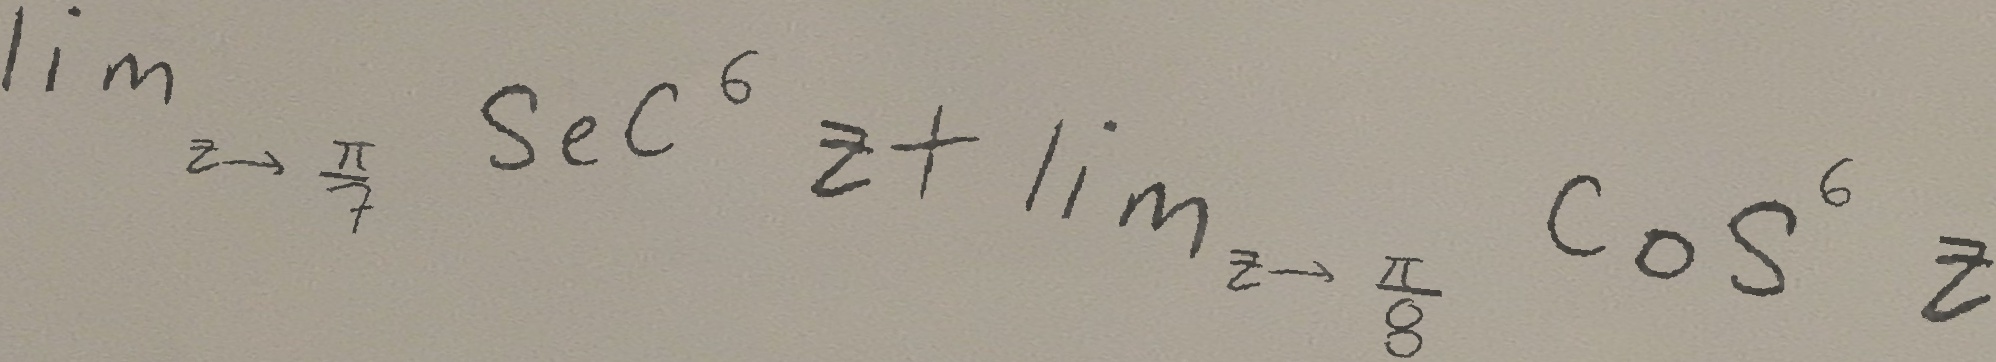 \lim_{z \to \frac{\pi}{7}} \sec^6 z + \lim_{z \to \frac{\pi}{8}} \cos^6 z